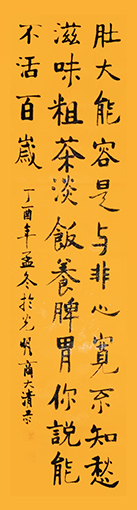 肚大能容是与非心寛不知愁
滋味粗茶淡飯養脾胃你說能
不活百歲
丁酉年孟冬於光明商大清書